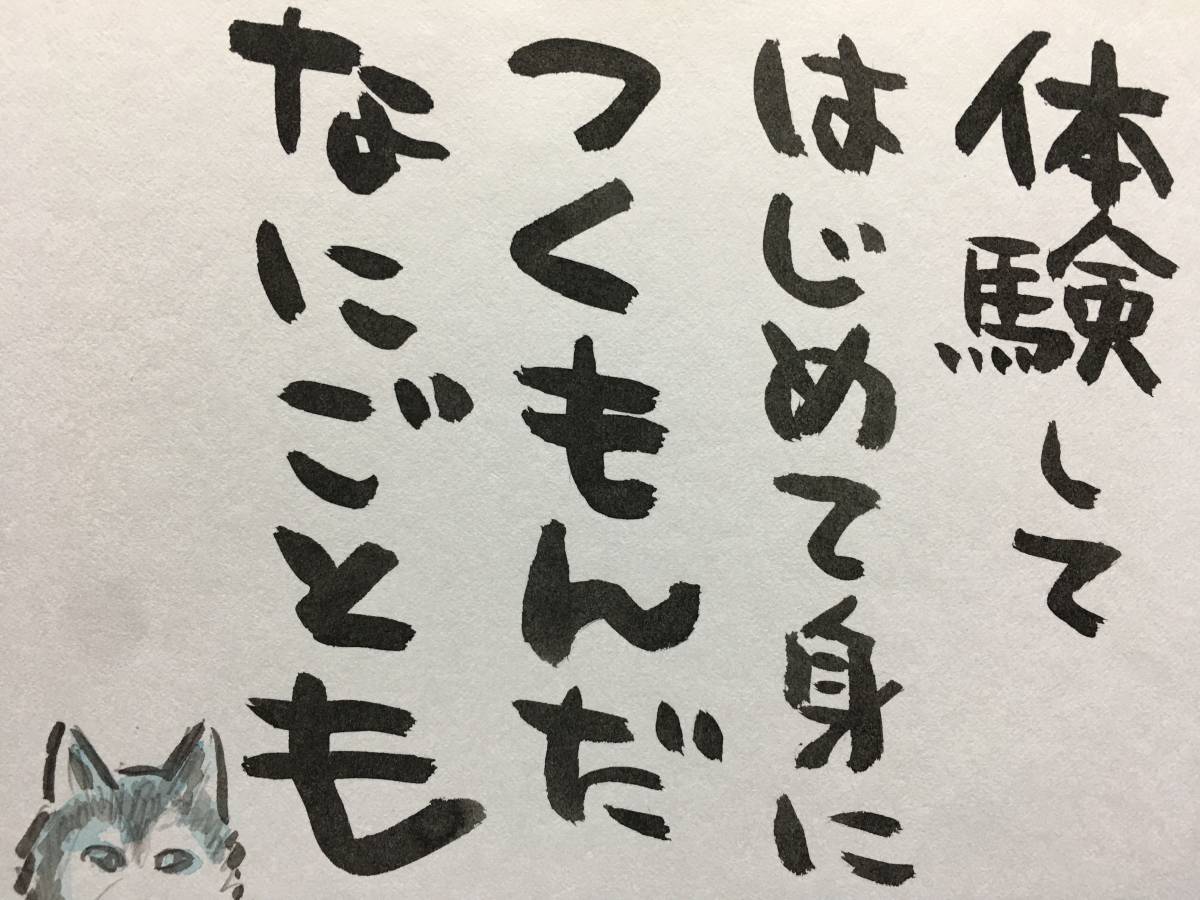 体験して
はじめて身に
つくもんだ
なにごとも